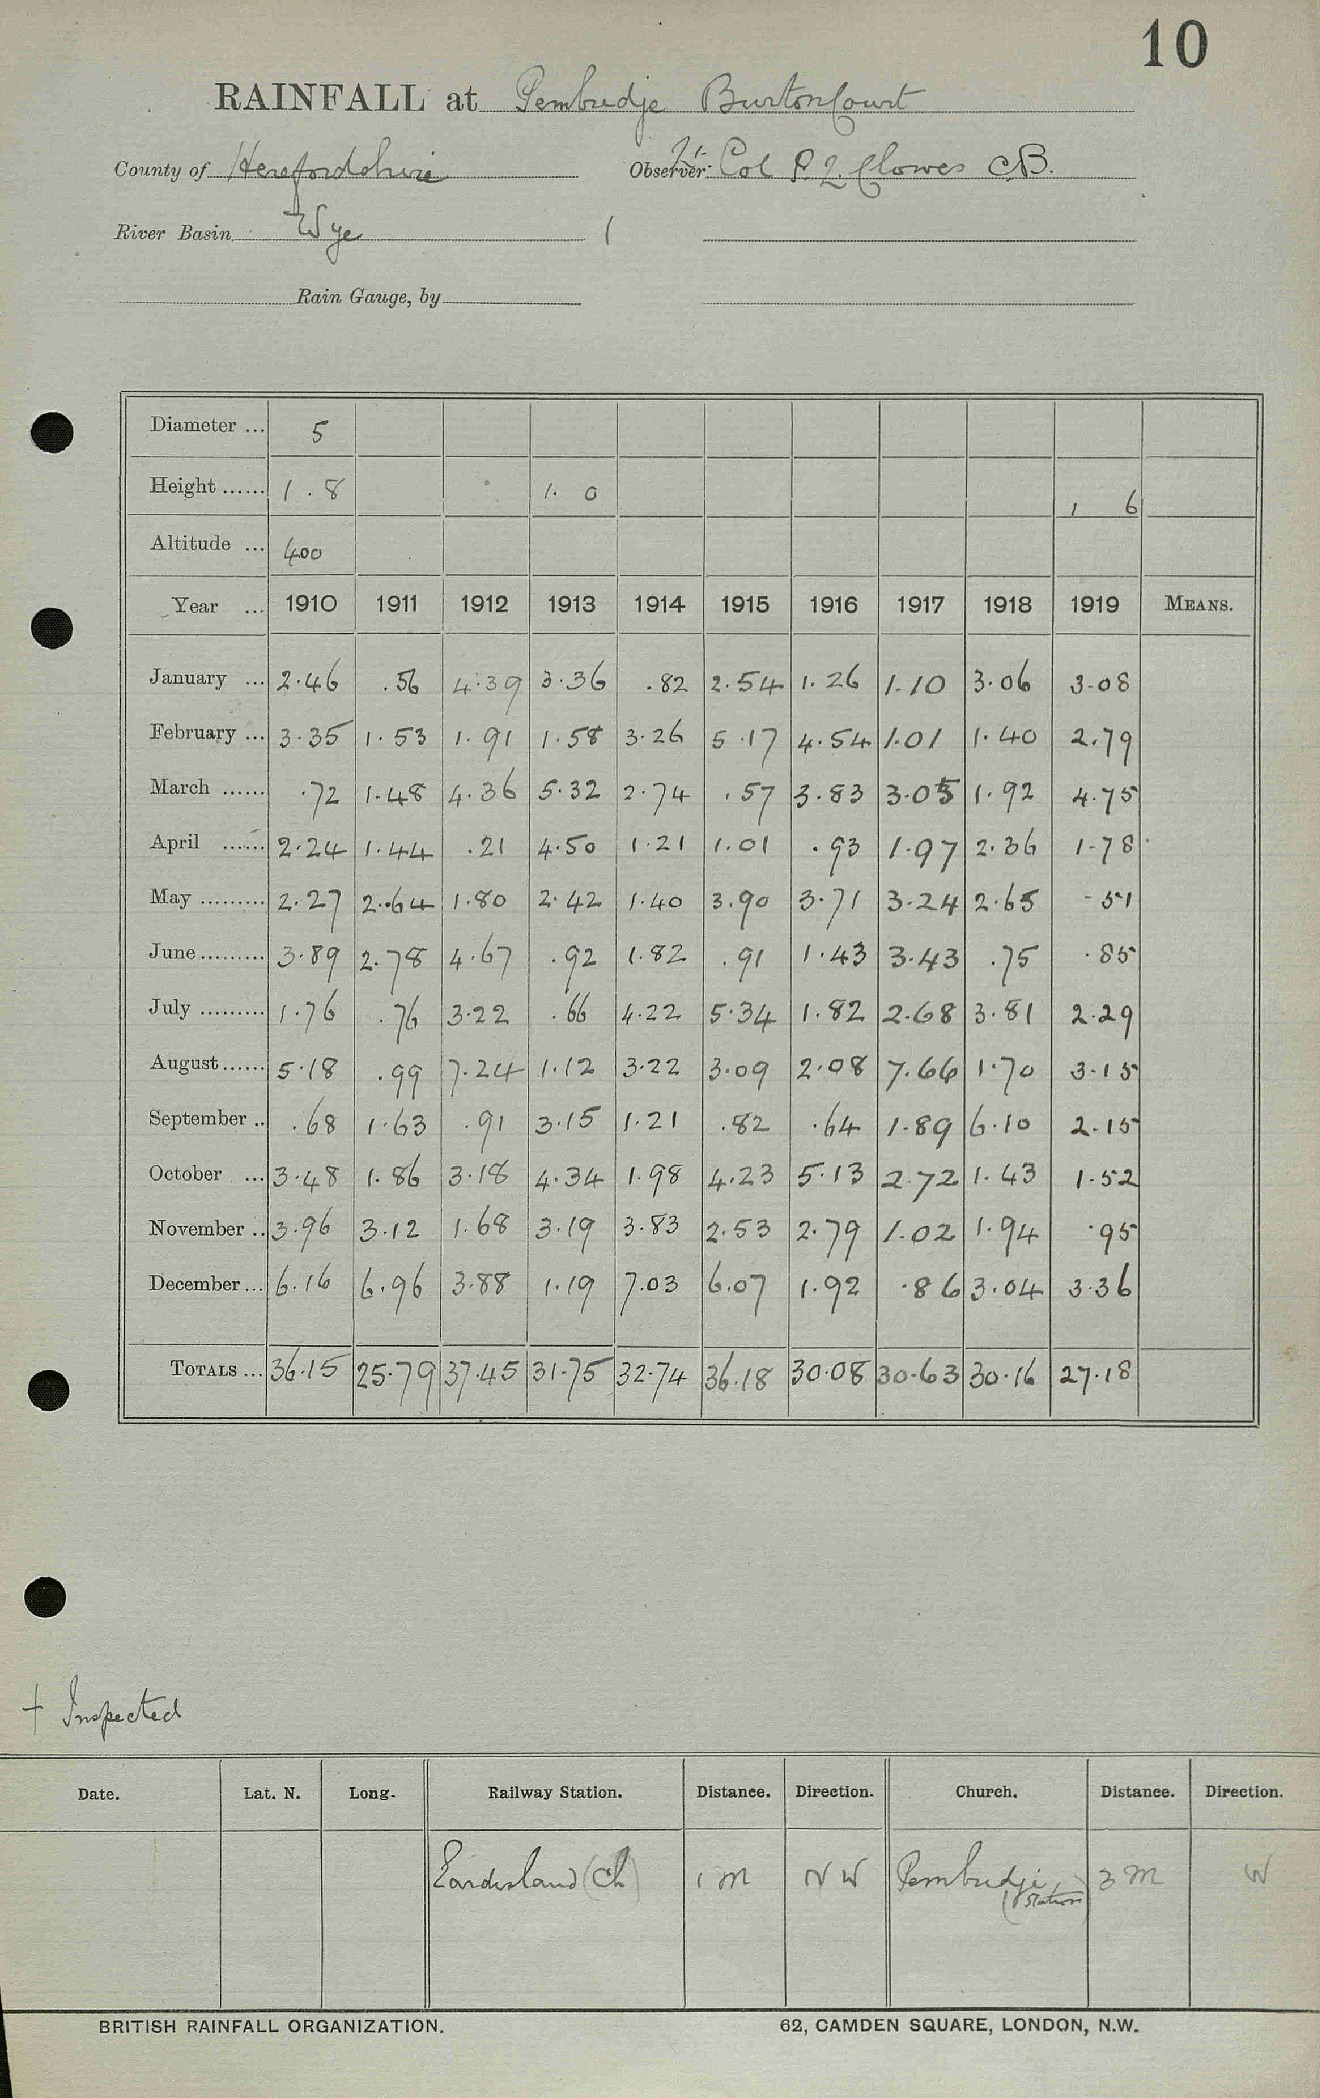 10
RAINFALL at Pembridge Burton Court
County of Herefordshire Observer: Lt. Col P. L. Clowes CB.
River Basin Wye 1
Rain Gauge, by
Diameter ... 5
Height ...... 1 . 8 1. 0 1 6
Altitude ... 400
Year ... 1910 1911 1912 1913 1914 1915 1916 1917 1918 1919 MEANS.
January ... 2.46 .56 4.39 3.36 .82 2.54 1.26 1.10 3.06 3.08
February ... 3.35 1.53 1.91 1.58 3.26 5.17 4.54 1.01 1.40 2.79
March ...... .72 1.48 4.36 5.32 2.74 .57 3.83 3.05 1.92 4.75
April ...... 2.24 1.44 .21 4.50 1.21 1.01 .93 1.97 2.36 1.78
May ......... 2.27 2.64 1.80 2.42 1.40 3.90 3.71 3.24 2.65 .51
June ......... 3.89 2.78 4.67 .92 1.82 .91 1.43 3.43 .75 .85
July ......... 1.76 .76 3.22 .66 4.22 5.34 1.82 2.68 3.81 2.29
August ...... 5.18 .99 7.24 1.12 3.22 3.09 2.08 7.66 1.70 3.15
September .. .68 1.63 .91 3.15 1.21 .82 .64 1.89 6.10 2.15
October ... 3.48 1.86 3.18 4.34 1.98 4.23 5.13 2.72 1.43 1.52
November .. 3.96 3.12 1.68 3.19 3.83 2.53 2.79 1.02 1.94 .95
December ... 6.16 6.96 3.88 1.19 7.03 6.07 1.92 .86 3.04 3.36
TOTALS ... 36.15 25.79 37.45 31.75 32.74 36.18 30.08 30.63 30.16 27.18
+ Inspected
Date. Lat. N. Long. Railway Station. Distance. Direction. Church. Distance. Direction.
Eardisland (Ch) 1 M N W Pembridge 3 M W
(Station)
BRITISH RAINFALL ORGANIZATION. 62, CAMDEN SQUARE, LONDON, N.W.